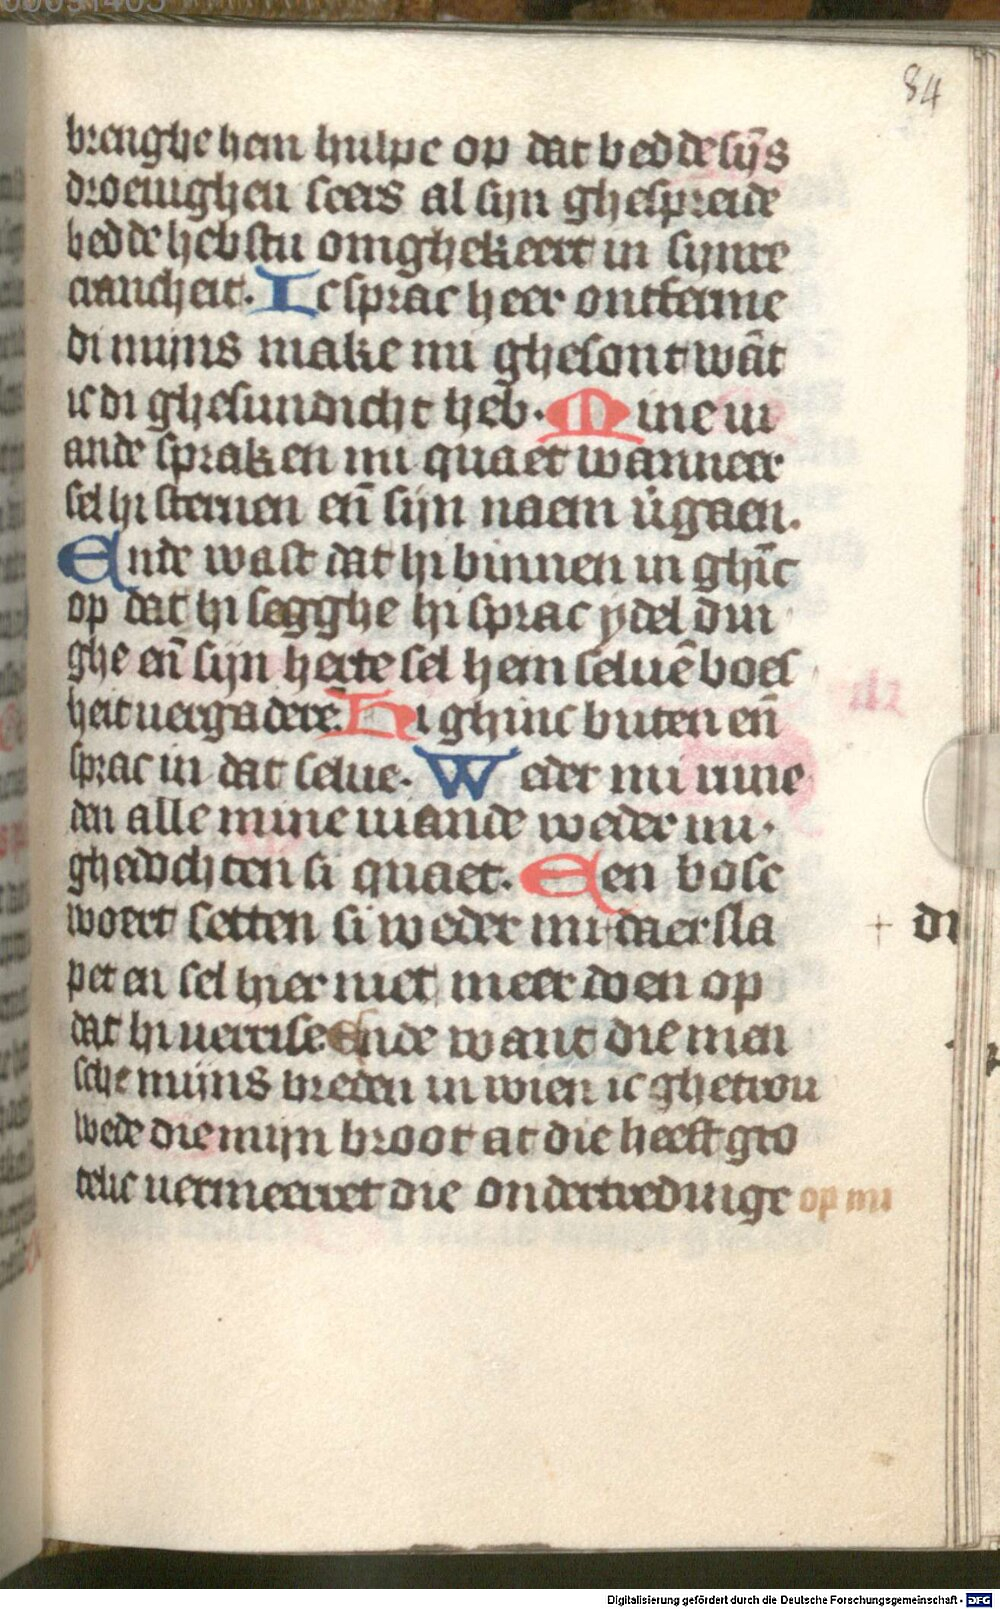 84
brenghe hem hulpe op dat bedde sijs
droeuighen seers al sijn ghespreide
bedde hebstu omghekeert in synre
crancheit. Ic sprac heer ontferme
di mijns make mi ghesont wāt
ic di ghesundicht heb. Mine ui
ande spraken mi quaet wanneer
sel hi steruen eñ sijn naem ùgaen.
Ende wast dat hi binnen in ghīc
op dat hi segghe hi sprac ydel din
ghe eñ sijn herte sel hem seluē boes
heit uergaderē. Hi ghinc buten eñ
sprac in dat selue. Weder mi rune
den alle mine uiande weder mi.
ghedochten si quaet. Een bose
woert setten si weder mi daer sla
pet en sel hier niet meer doen op
dat hi uerrise Ende want die men
sche mijns vreden in wien ic ghetrou
wede die mijn broot at die heeft gro
telic uermeerret die ondertredinge op mi
+ di
Digitalisierung gefördert durch die Deutsche Forschungsgemeinschaft - DFG